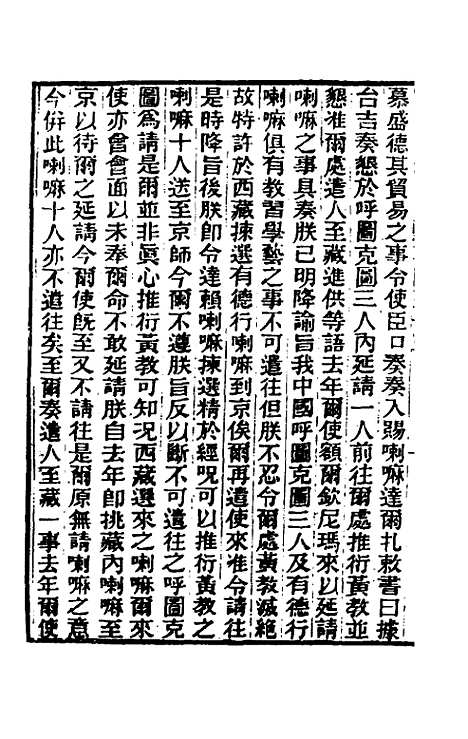 慕盛德其貿易之事令使臣口奏奏入賜喇嘛達爾扎敕書曰據
台吉奏懇於呼圖克圖三人內延請一人前往爾處推衍黃教並
懇准爾處遣人至藏進供等語去年爾使額爾欽尼瑪來以延請
喇嘛之事具奏朕已明降諭旨我中國呼圖克圖三人及有德行
喇嘛俱有教習學藝之事不可遣往但朕不忍令爾處黃教滅絕
故特許於西藏揀選有德行喇嘛到京俟爾再遣使來准令請往
是時降旨後朕即令達賴喇嘛揀選精於經呪可以推衍黃教之
喇嘛十人送至京師今爾不遵朕旨反以斷不可遣往之呼圖克
圖為請是爾並非眞心推衍黃教可知況西藏選來之喇嘛爾來
使亦曾會面以未奉爾命不敢延請朕自去年卽挑藏內喇嘛至
京以待爾之延請今爾使旣至又不請往是爾原無請喇嘛之意
今倂此喇嘛十人亦不遣往矣至爾奏遣人至藏一事去年爾使